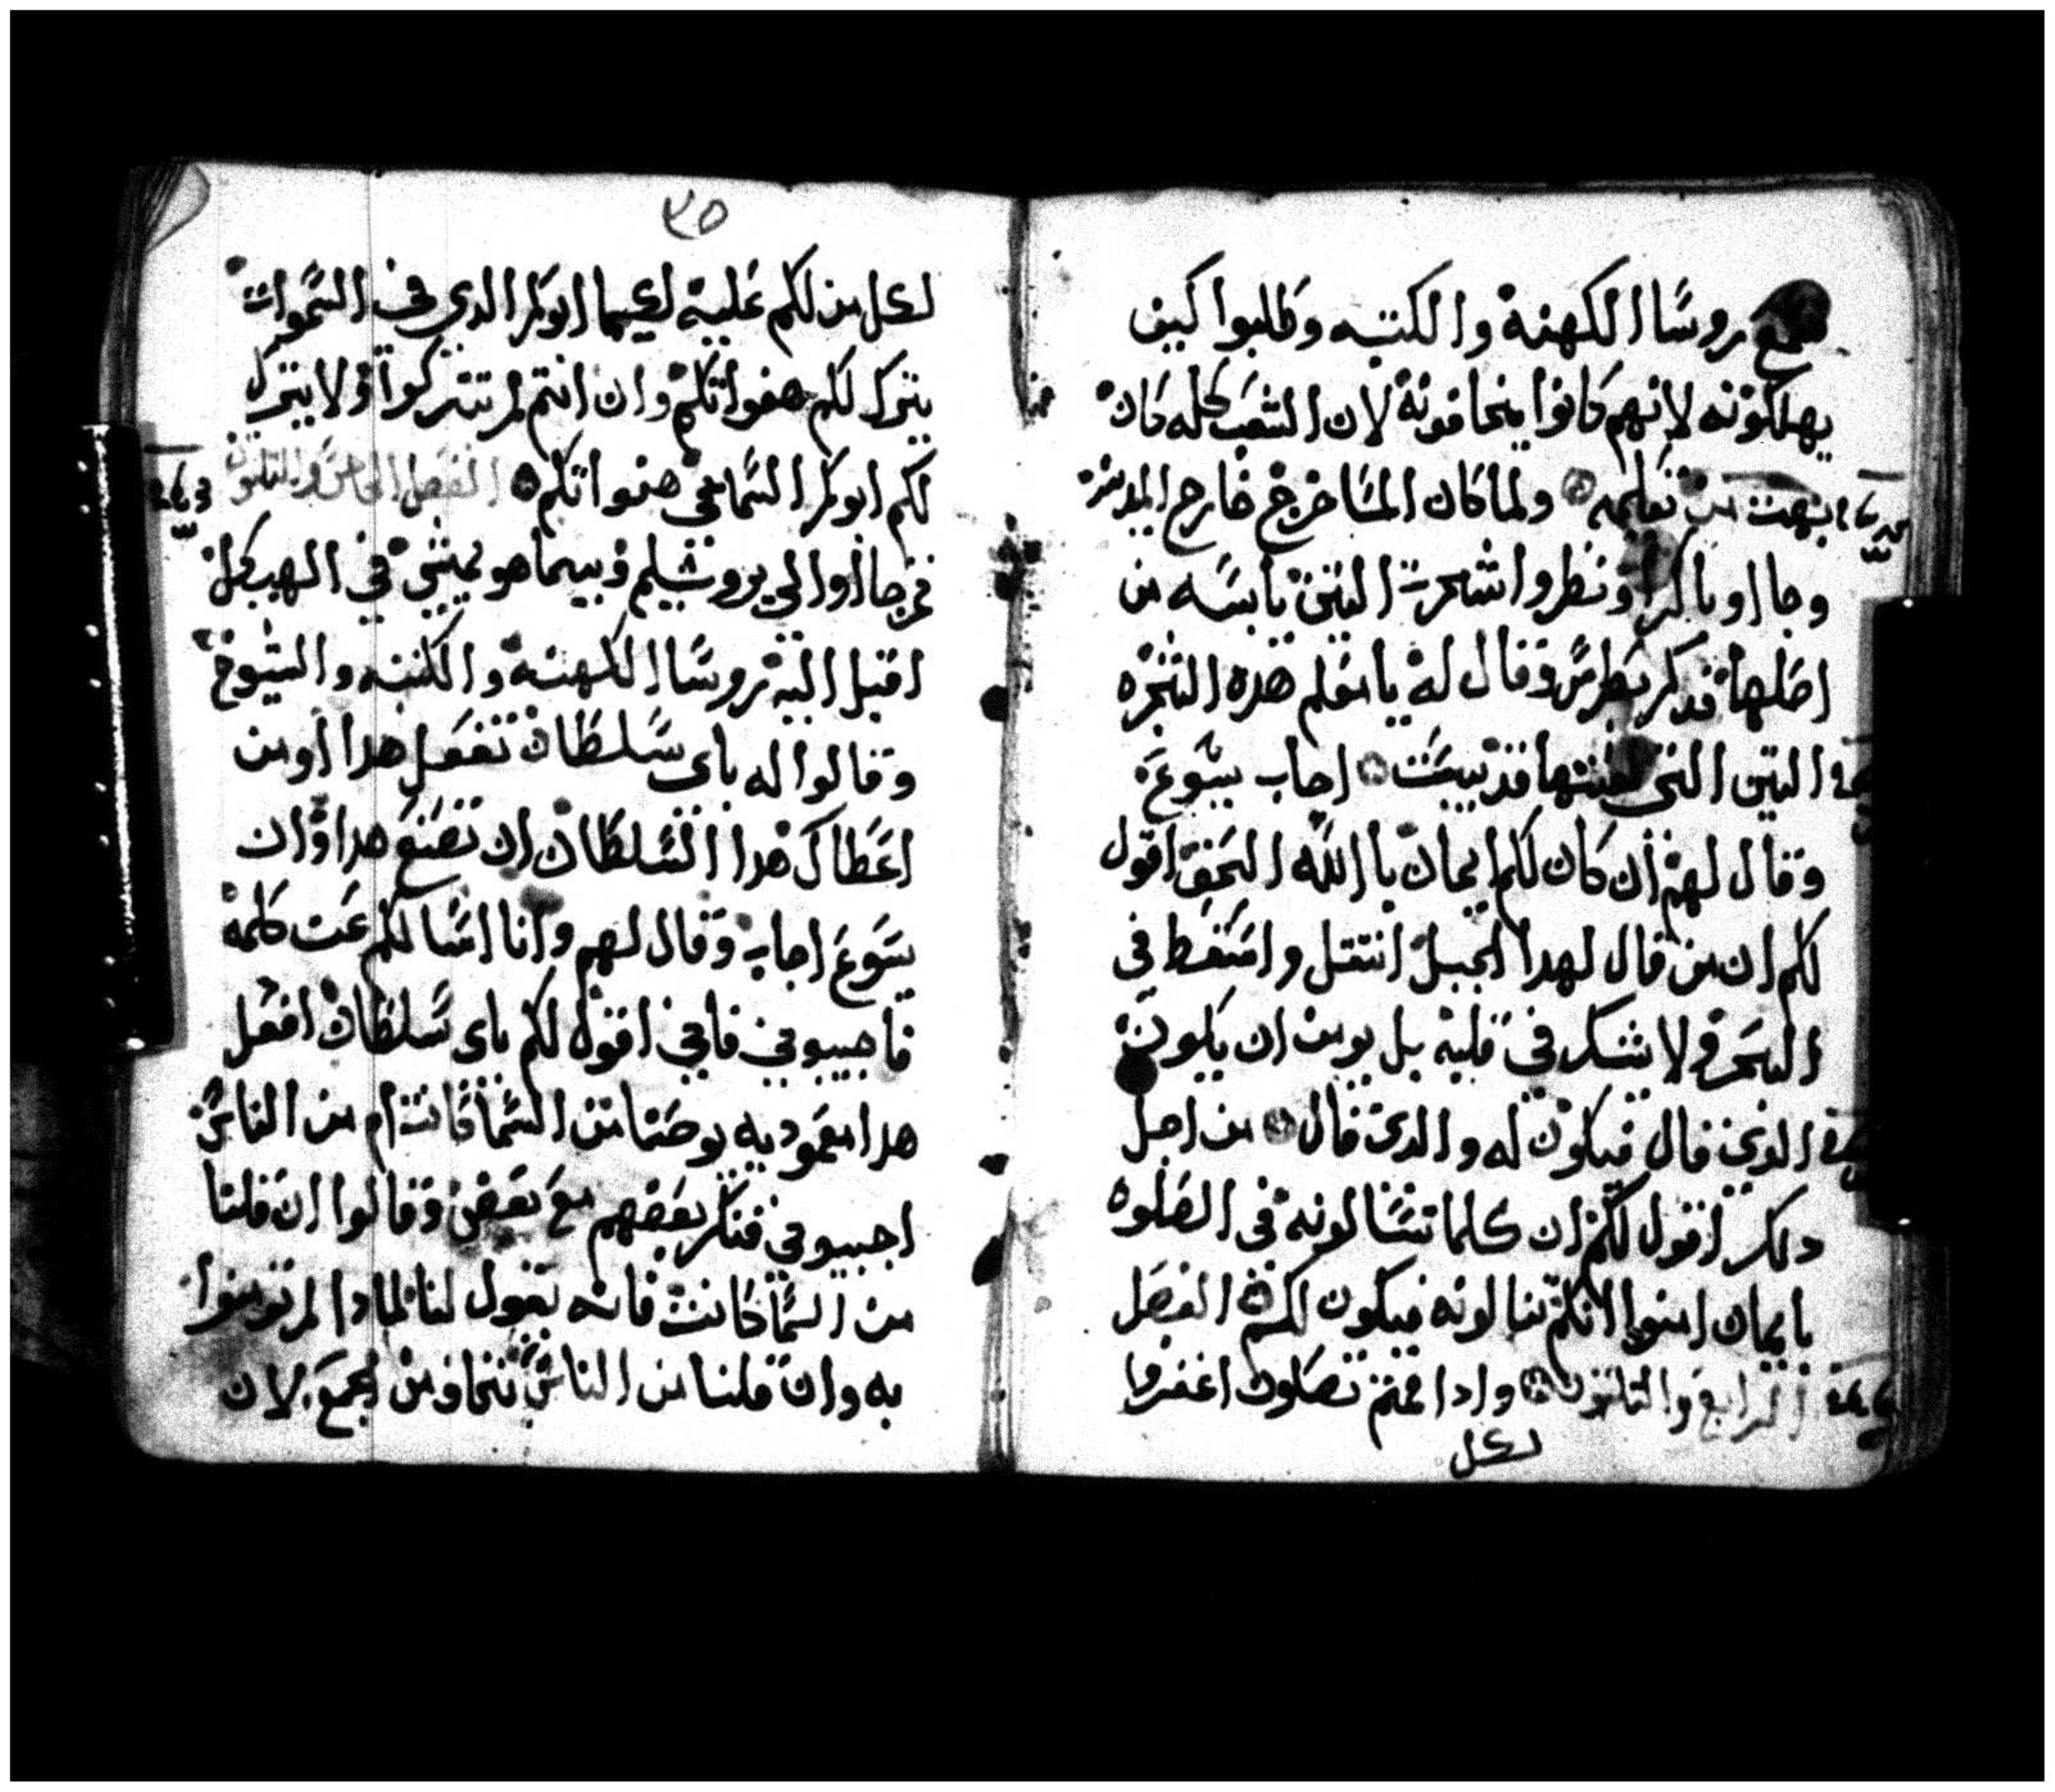 سمع روسا الكهنة والكتبه وطلبوا كيف
يهلكونه لانهم كانوا يخافونه لان الشعب كله كان
بهت من تعليمه ولما كان المسا خرج خارج المدينه
وجااو باكرا ونظروا شجرت التين يابسه من
اصلها فدكر بطرس وقال له يامعلم هده الشجره
التين التي لعنتها قد يبست اجاب يسوع
وقال لهم ان كان لكم ايمان باالله الحق اقول
لكم ان من قال لهدا الجبل انتقل واسقط في
البحر ولا يشك في قلبه بل يومن ان يكون
الدي قال فيكون له والدي قال من اجل
دلك اقول لكم ان كلما تسالونه في الصلوه
بايمان امنوا انكم تنالونه فيكون لكم الفصل
الرابع والتلتون وادا قمتم تصلون اغفروا
لكل
٣٥
لكل من لكم عليه لكيما ابوكم الدي في السموات
يترك لكم هفواتكم وان انتم لم تتركوا ولا يترك
لكم ابوكم السمايي هفواتكم الفصل الخامس والتلتون
فرجااوا الي يروشليم وبيما هو يمشي في الهيكل
اقبل اليه روسا الكهنة والكتبه والشيوخ
وقالوا له باي سلطان تفعل هدا او من
اعطاك هدا السلطان ان تصنع هدا وان
يسوع اجاب وقال لهم وانا اسالكم عن كلمة
فاجيبوني فاني اقول لكم باي سلطان افعل
هدا معموديه يوحنا من السما كانت ام من الناس
اجيبوني ففكر بعضهم مع بعض وقالوا ان قلنا
من السما كانت فانه يقول لنا لمادا لم تومنوا
به وان قلنا من الناس نخاف من الجمع لان